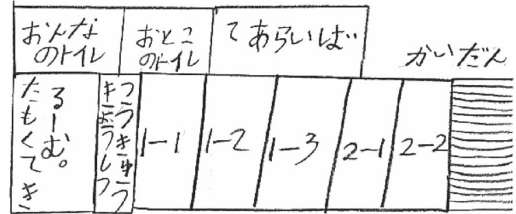 おんな
のトイレ
おとこ
のトイレ
てあらいば
かいだん
たもくてき
るーむ。
つうきゅう
きょうしつ
1-1
1-2
1-3
2-1
2-2